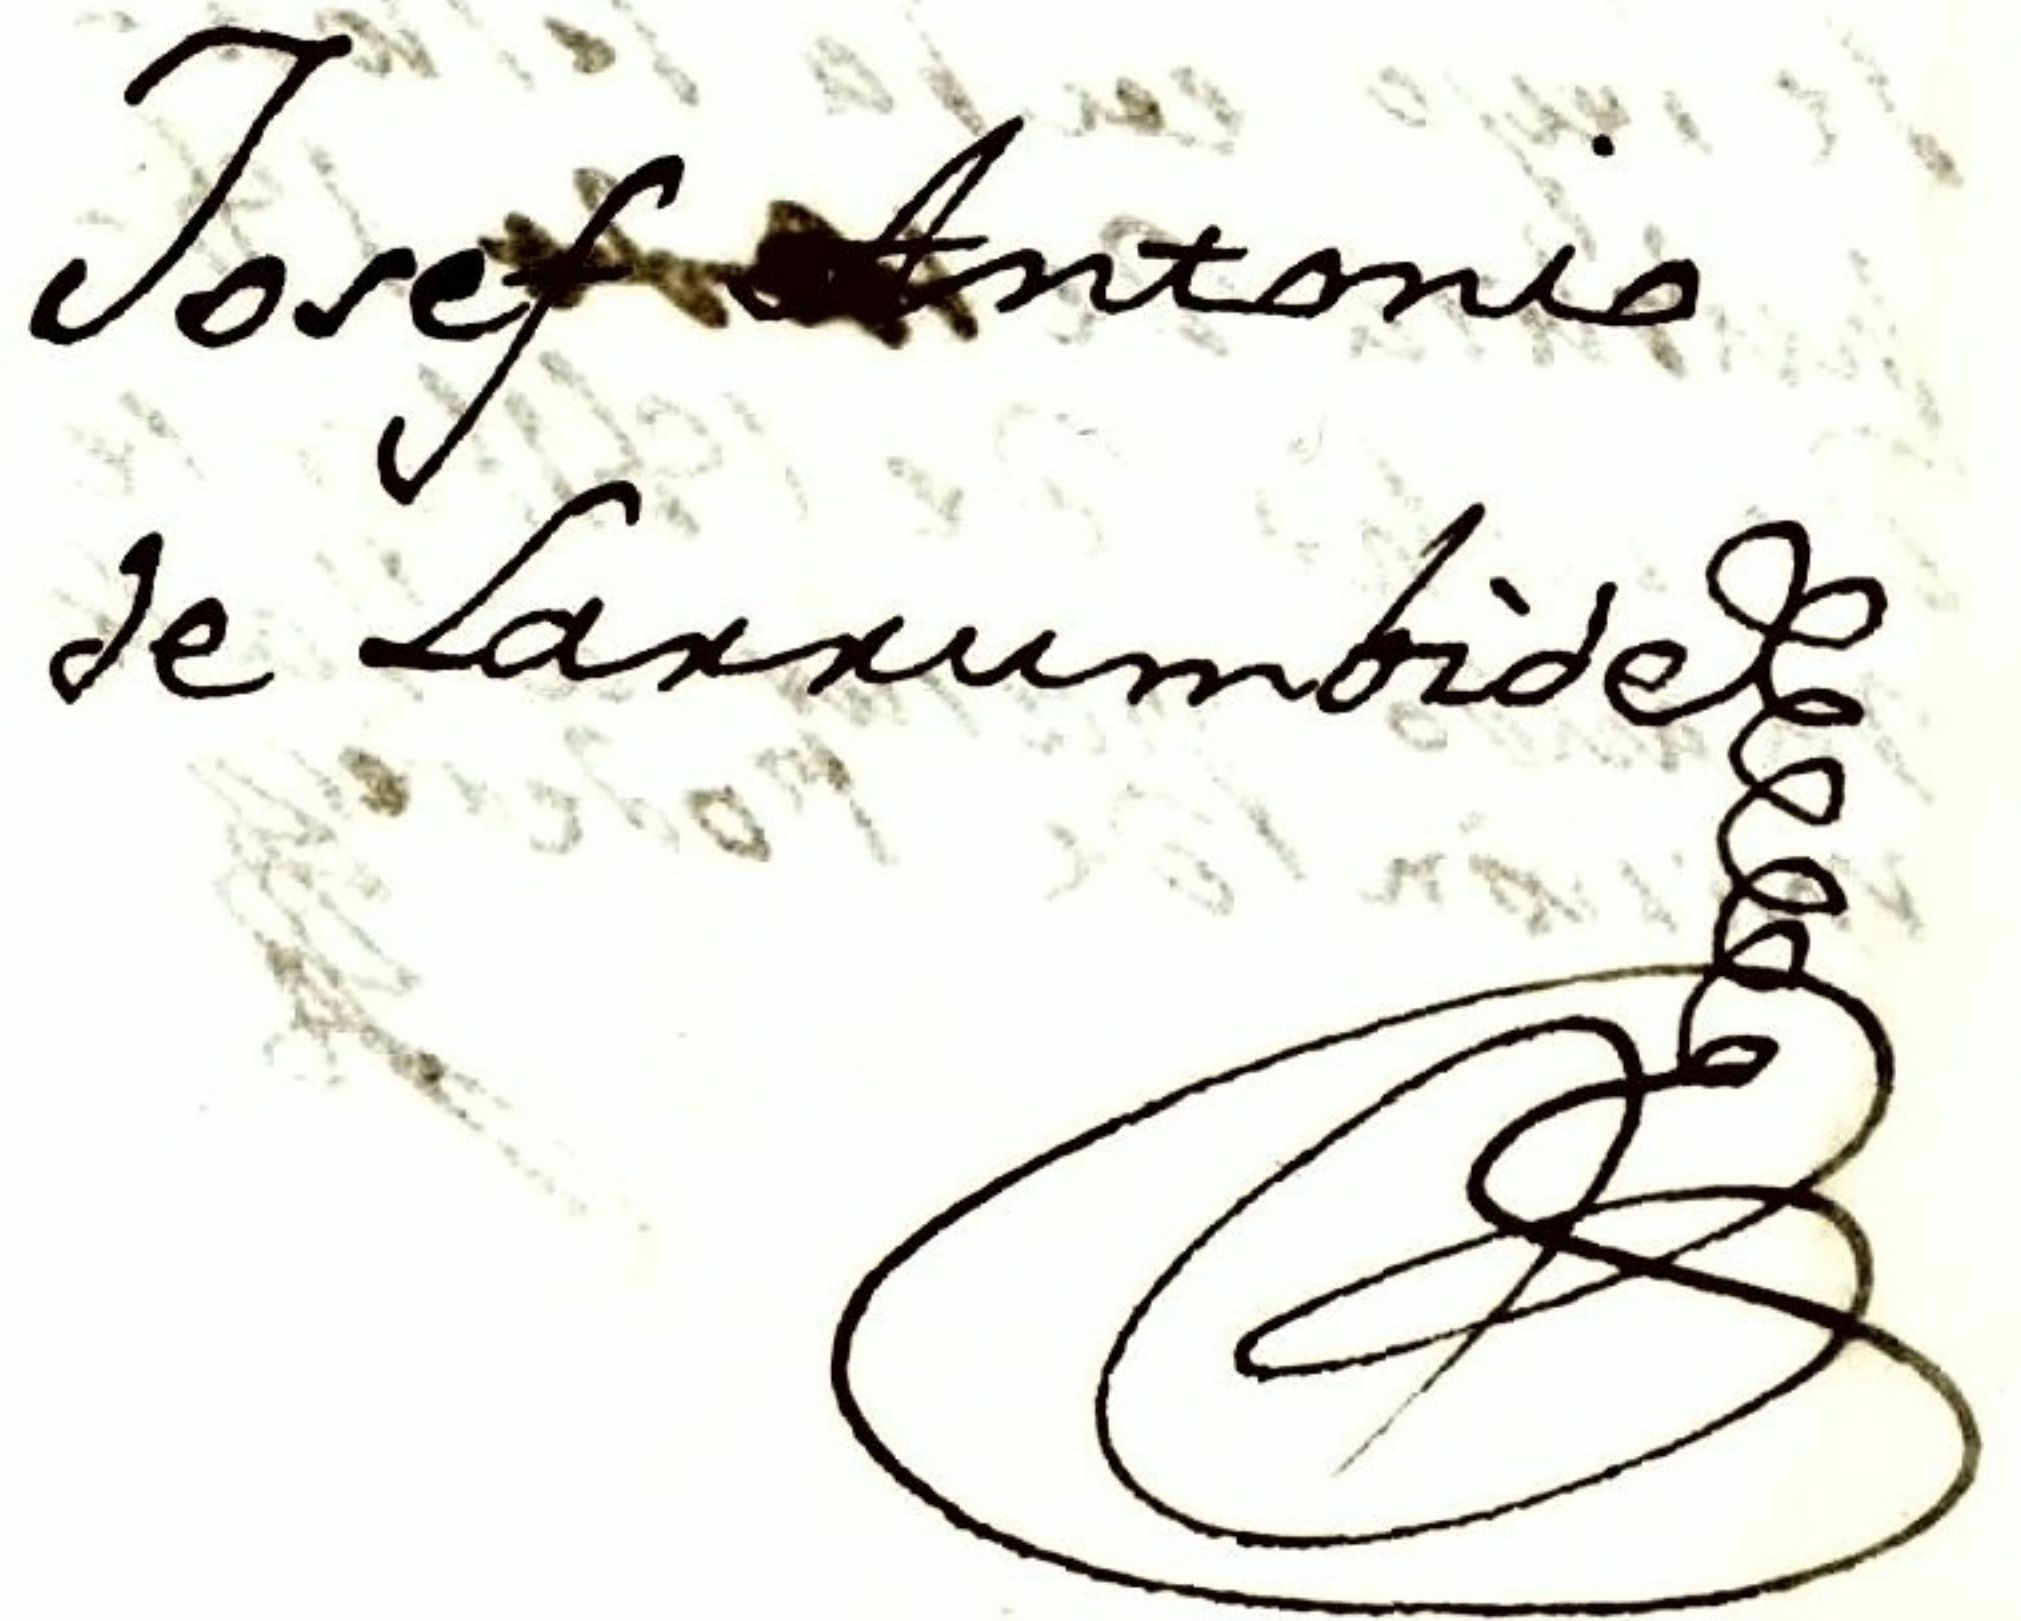 Josef Antonio
de Larrumbide